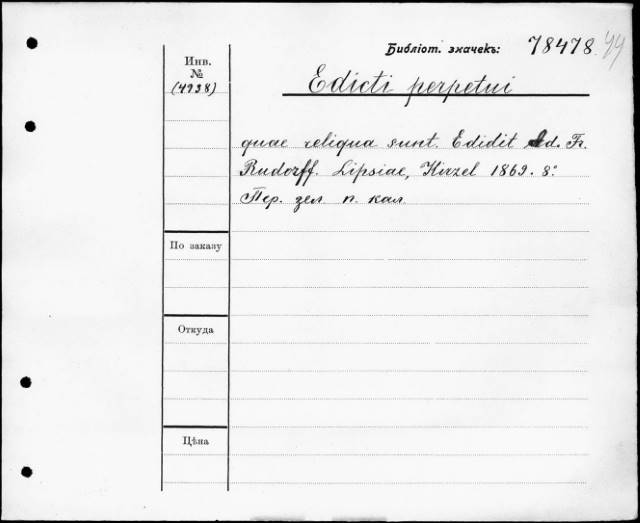 Библіот. значекъ: 78478
Инв.
№
(4938)
Edicti perpetui
quae reliqua sunt. Edidit Ad. Fr.
Rudorff. Lipsiae, Hirzel 1869. 8°.
Пер. зел. п. кал.
По заказу
Откуда
Цѣна